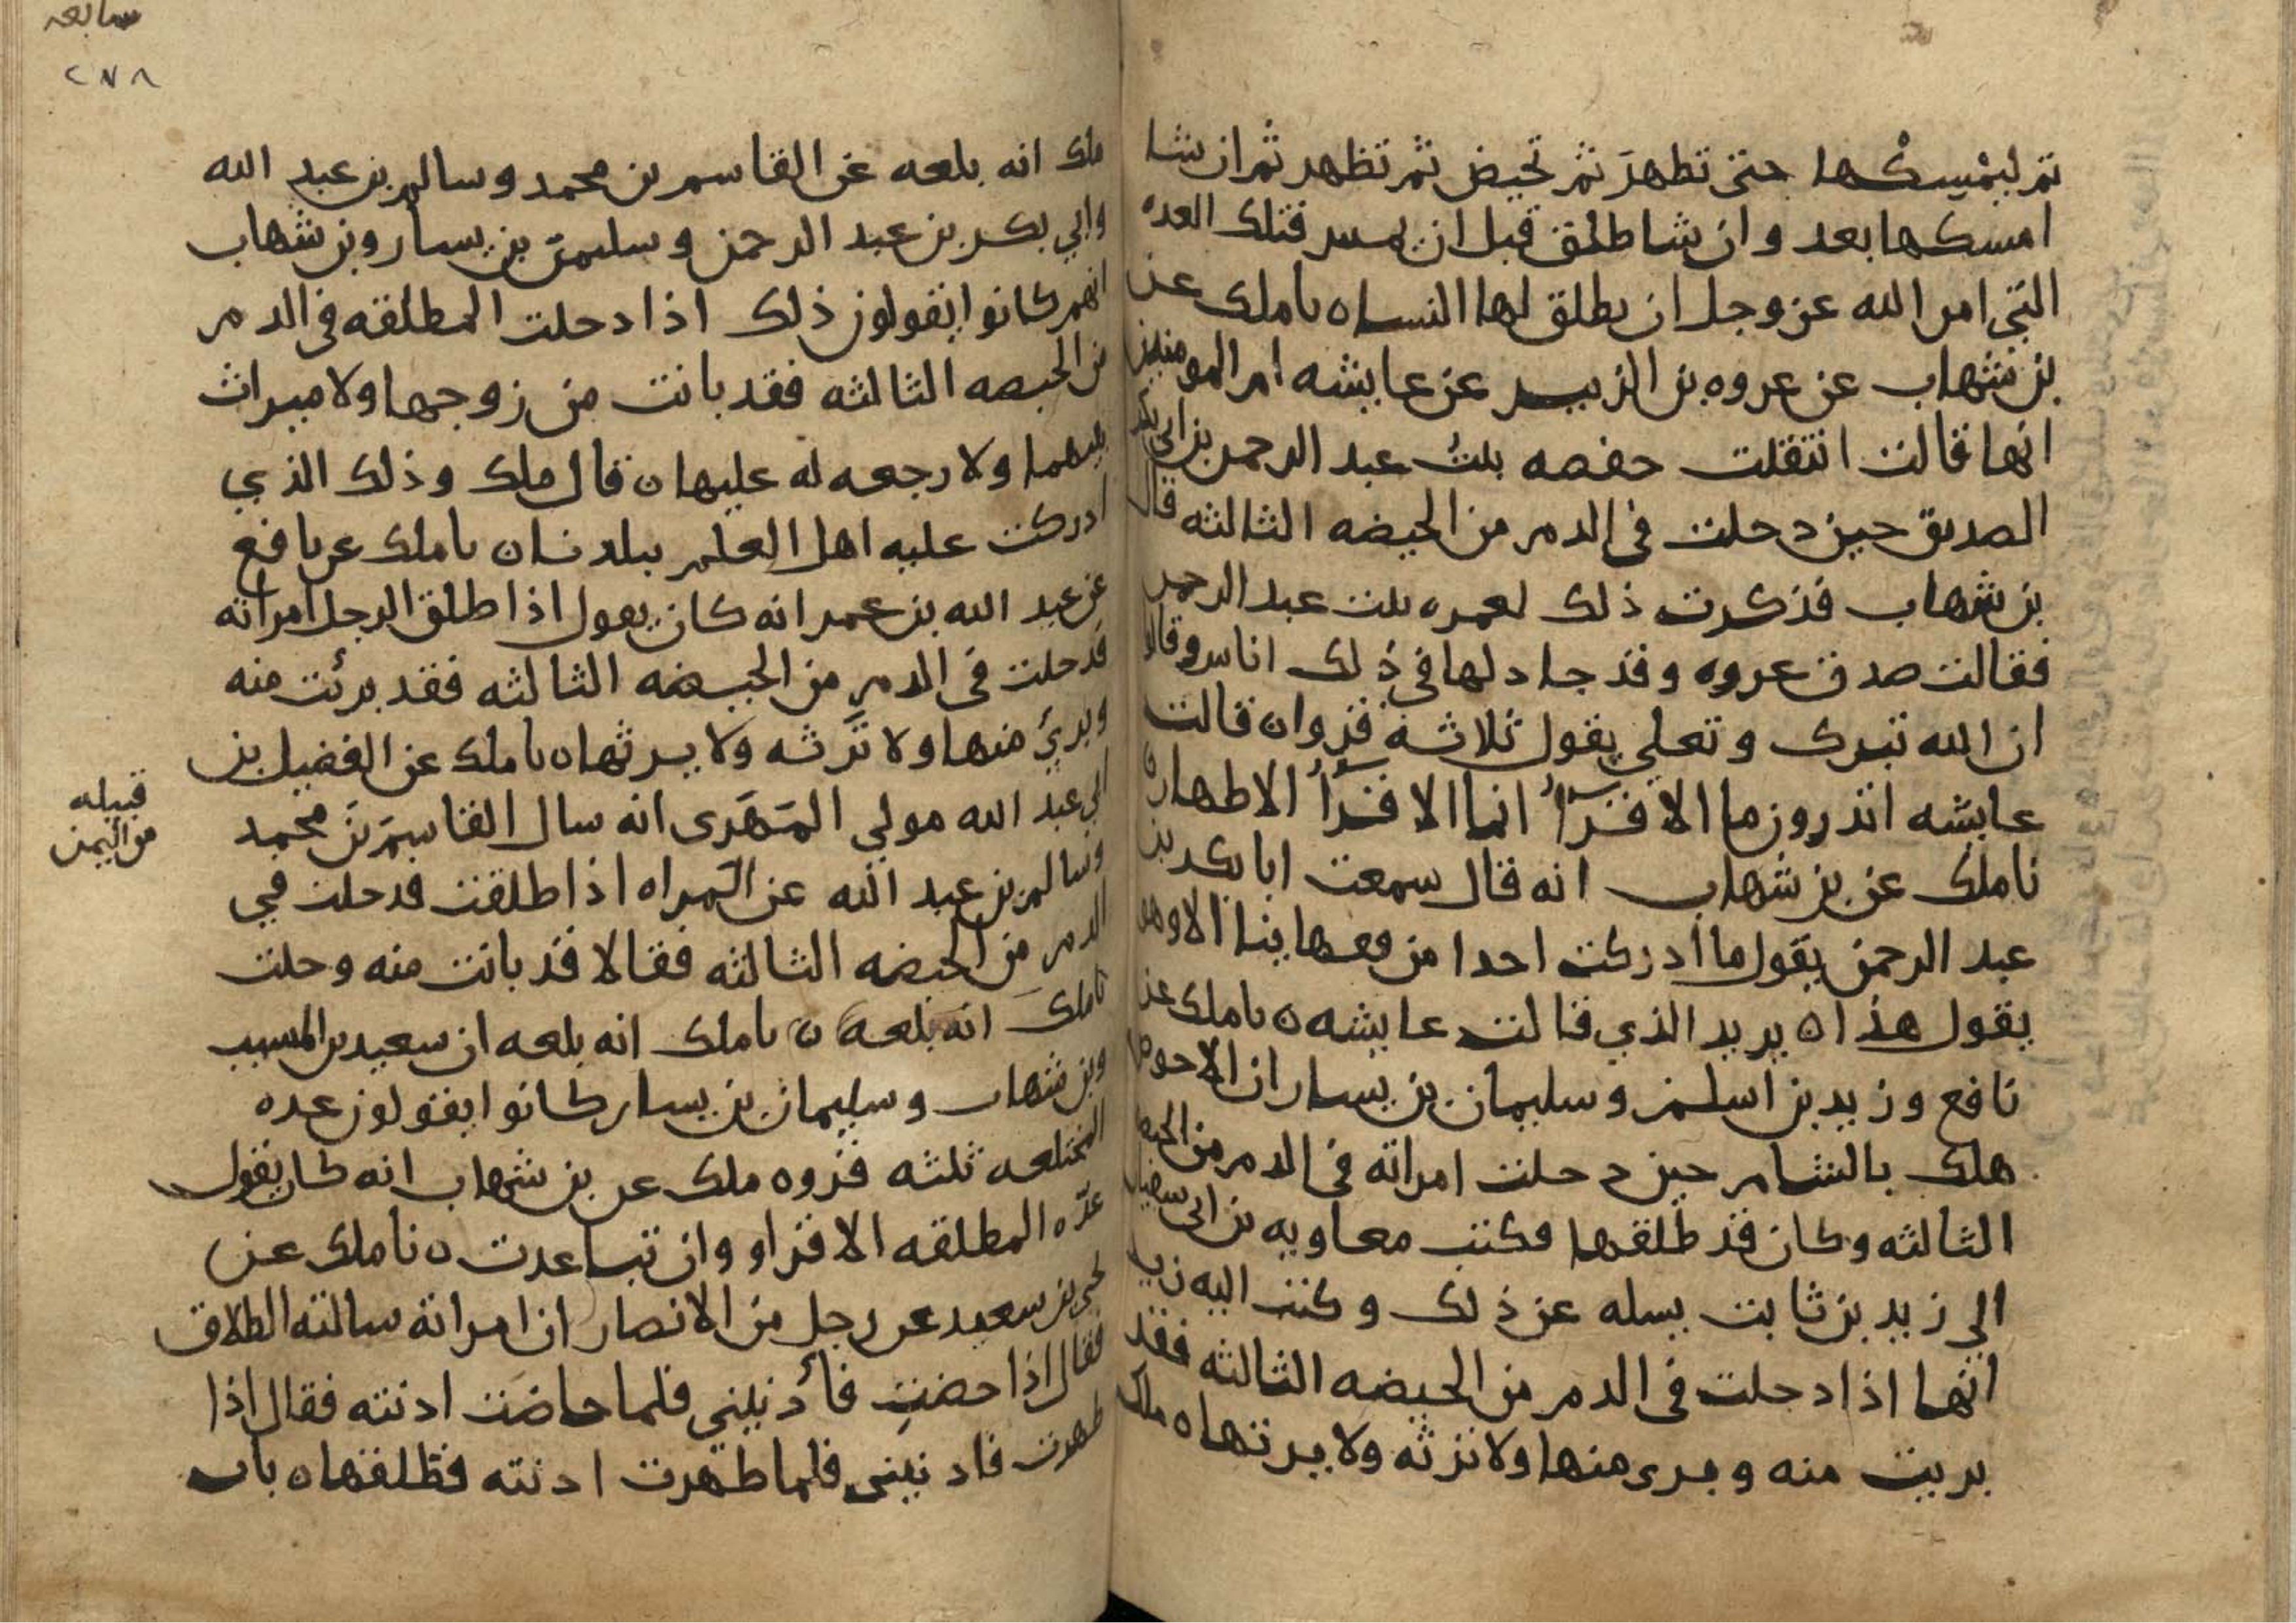 ثم ليمسكها حتى تطهر ثم تحيض ثم تطهر ثم ان شا
امسكها بعد وان شا طلق قبل ان يمس فتلك العده
التي امر الله عز وجل ان يطلق لها النسا ه نا ملك عن
بن شهاب عن عروه بن الزبير عن عايشه ام المومنين
انها قالت انتقلت حفصه بنت عبد الرحمن بن ابي بكر
الصديق حين دخلت في الدم من الحيضه الثالثه قال
بن شهاب فذكرت ذلك لعمره بنت عبد الرحمن
فقالت صدق عروه وقد جادلها في ذلك اناس وقالوا
ان الله تبرك وتعلى يقول ثلاثة قروا ن قالت
عايشه اتدرون ما الاقرأ انما الاقرأ الاطهار ن
نا ملك عن بن شهاب انه قال سمعت ابا بكر بن
عبد الرحمن يقول ما أدركت احدا من فقهاينا الا وهو
يقول هذا ه يريد الذي قالت عايشه ن نا ملك عن
نافع وزيد بن اسلم وسليمان بن يسار ان الاحوص
هلك بالشام حين دخلت امراته في الدم من الحيضه
الثالثه وكان قد طلقها فكتب معاويه بن ابي سفيان
الي زيد بن ثابت يسله عن ذلك وكتب اليه زيد
انها اذا دخلت في الدم من الحيضه الثالثه فقد
بريت منه وبرى منها ولا ترثه ولا يرثها ه ملك
سابعه
٢٧٨
ملك انه بلغه عن القاسم بن محمد وسالم بن عبد الله
وابي بكر بن عبد الرحمن وسليمن بن يسار وبن شهاب
انهم كانوا يقولون ذلك اذا دخلت المطلقه في الدم
من الحيضه الثالثه فقد بانت من زوجها ولا ميراث
بينهما ولا رجعه له عليها ن قال ملك وذلك الذي
ادركت عليه اهل العلم ببلدنا ن نا ملك عن نافع
عن عبد الله بن عمر انه كان يقول اذا طلق الرجل امراته
فدخلت في الدم من الحيضه الثالثه فقد برئت منه
وبرئ منها ولا ترثه ولا يرثها ه نا ملك عن الفضيل بن
ابي عبد الله مولي المهرى انه سال القاسم بن محمد
قبيله
من اليمن
وسالم بن عبد الله عن المراه اذا طلقت فدخلت في
الدم من الحيضه الثالثه فقالا قد بانت منه وحلت
نا ملك انه بلغه ن نا ملك انه بلغه ان سعيد بن المسيب
وبن شهاب وسليمان بن يسار كانوا يقولون عده
المختلعه ثلثه قروه ملك عن بن شهاب انه كان يقول
عدّه المطلقه الاقراو وان تباعدت ن نا ملك عن
يحيى بن سعيد عن رجل من الانصار ان امراته سالته الطلاق
فقال اذا حضتِ فأذنيني فلما حاضت اذنته فقال اذا
طهرت فاذنيني فلما طهرت اذنته فطلقها ن باب